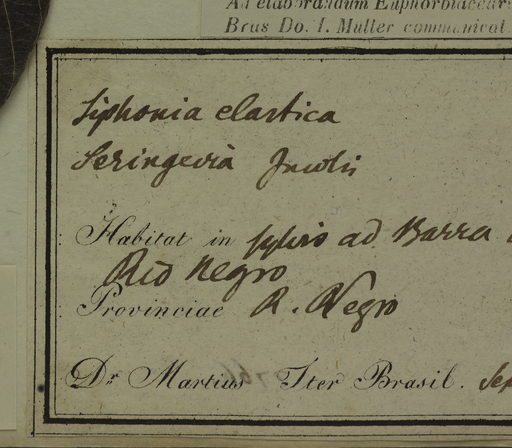 Ad elaborandum Euphorbiacear
Bras Do. I. Muller communicat
Siphonia elastica
Seringeira Incolis
Habitat in sylvis ad Barra
Rio Negro
Provinciae R. Negro
Dr. Martius Iter Brasil. Sep